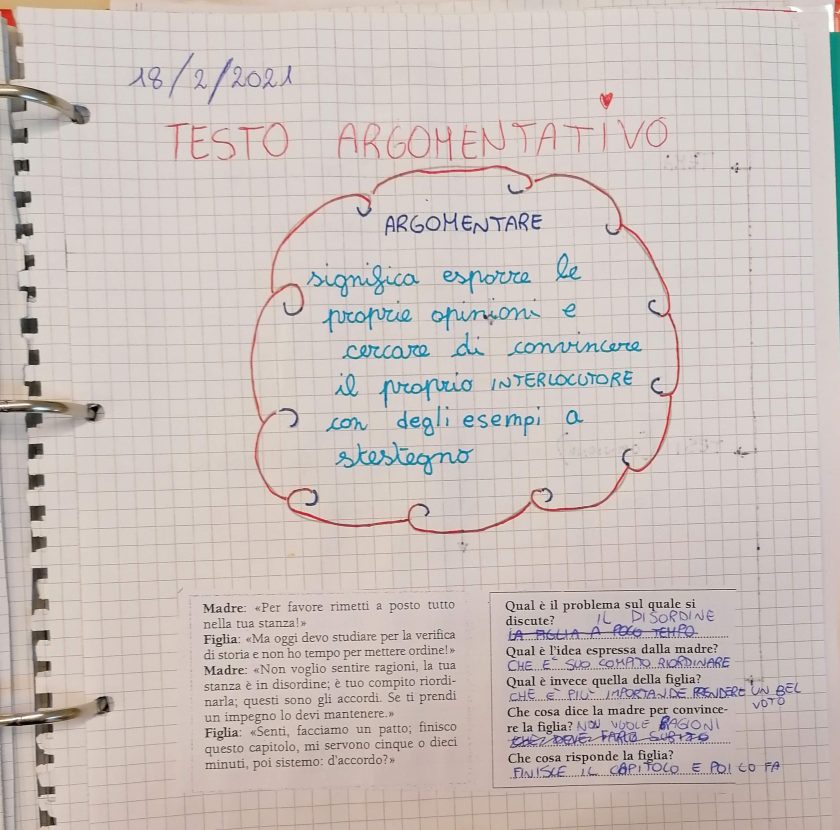 18/2/2021
TESTO ARGOMENTATIVO
ARGOMENTARE
significa esporre le
proprie opinioni e
cercare di convincere
il proprio INTERLOCUTORE
con degli esempi a
stestegno
Madre: «Per favore rimetti a posto tutto
nella tua stanza!»
Figlia: «Ma oggi devo studiare per la verifica
di storia e non ho tempo per mettere ordine!»
Madre: «Non voglio sentire ragioni, la tua
stanza è in disordine; è tuo compito riordi-
narla; questi sono gli accordi. Se ti prendi
un impegno lo devi mantenere.»
Figlia: «Senti, facciamo un patto; finisco
questo capitolo, mi servono cinque o dieci
minuti, poi sistemo: d'accordo?»
Qual è il problema sul quale si
discute? IL DISORDINE
LA FIGLIA A POCO TEMPO
Qual è l'idea espressa dalla madre?
CHE E' SUO COMPITO RIORDINARE
Qual è invece quella della figlia?
CHE E' PIU' IMPORTANDE PRENDERE UN BEL
VOTO
Che cosa dice la madre per convince-
re la figlia? NON VUOLE RAGIONI
CHE DEVE FARLO SUBITO
Che cosa risponde la figlia?
FINISCE IL CAPITOLO E POI LO FA